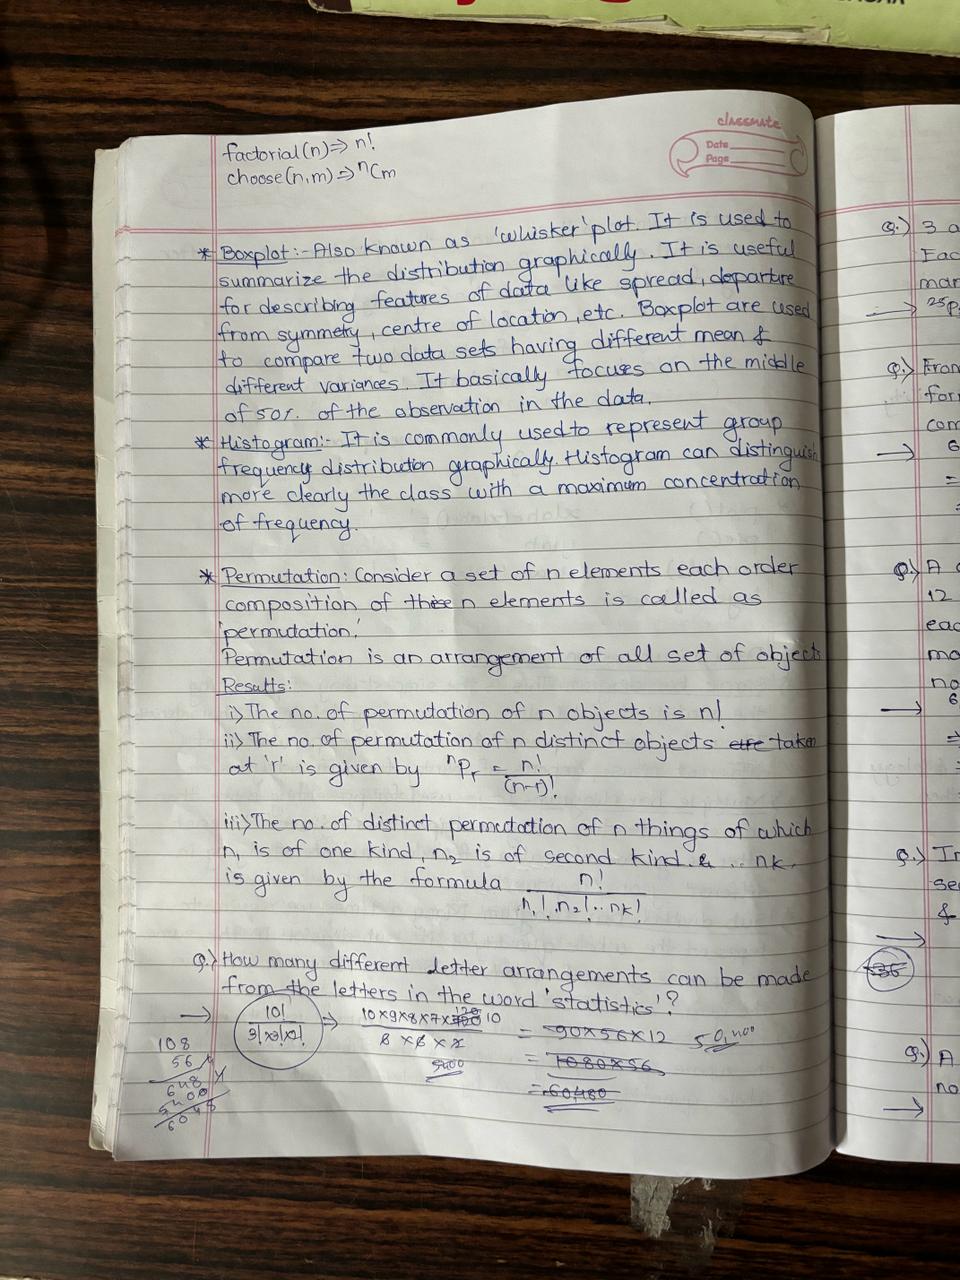 classmate
Date
Page
factorial(n) => n!
choose(n,m) => ⁿCm
* Boxplot :- Also known as 'whisker' plot. It is used to
summarize the distribution graphically. It is useful
for describing features of data like spread, departure
from symmetry, centre of location, etc. Boxplot are used
to compare two data sets having different mean &
different variances. It basically focuses on the middle
of 50% of the observation in the data.
* Histogram:- It is commonly used to represent group
frequency distribution graphically. Histogram can distinguish
more clearly the class with a maximum concentration
of frequency.
* Permutation: Consider a set of n elements each order
composition of these n elements is called as
'permutation.'
Permutation is an arrangement of all set of objects
Results:
i) The no. of permutation of n objects is n!
ii) The no. of permutation of n distinct objects taken
at 'r' is given by ⁿPr = n!/(n-r)!
iii) The no. of distinct permutation of n things of which
n₁ is of one kind, n₂ is of second kind & .. nk.
is given by the formula n!/n₁!.n₂!..nk!
Q.) How many different letter arrangements can be made
from the letters in the word 'statistics'?
→ 10!/3!x3!x2! => = 90x56x12 50,400
= 1080x56
= 60,480
108
56
648
5400
6048
5400
Q.) 3
Q.)
12
Q.) In
Q.) A
no